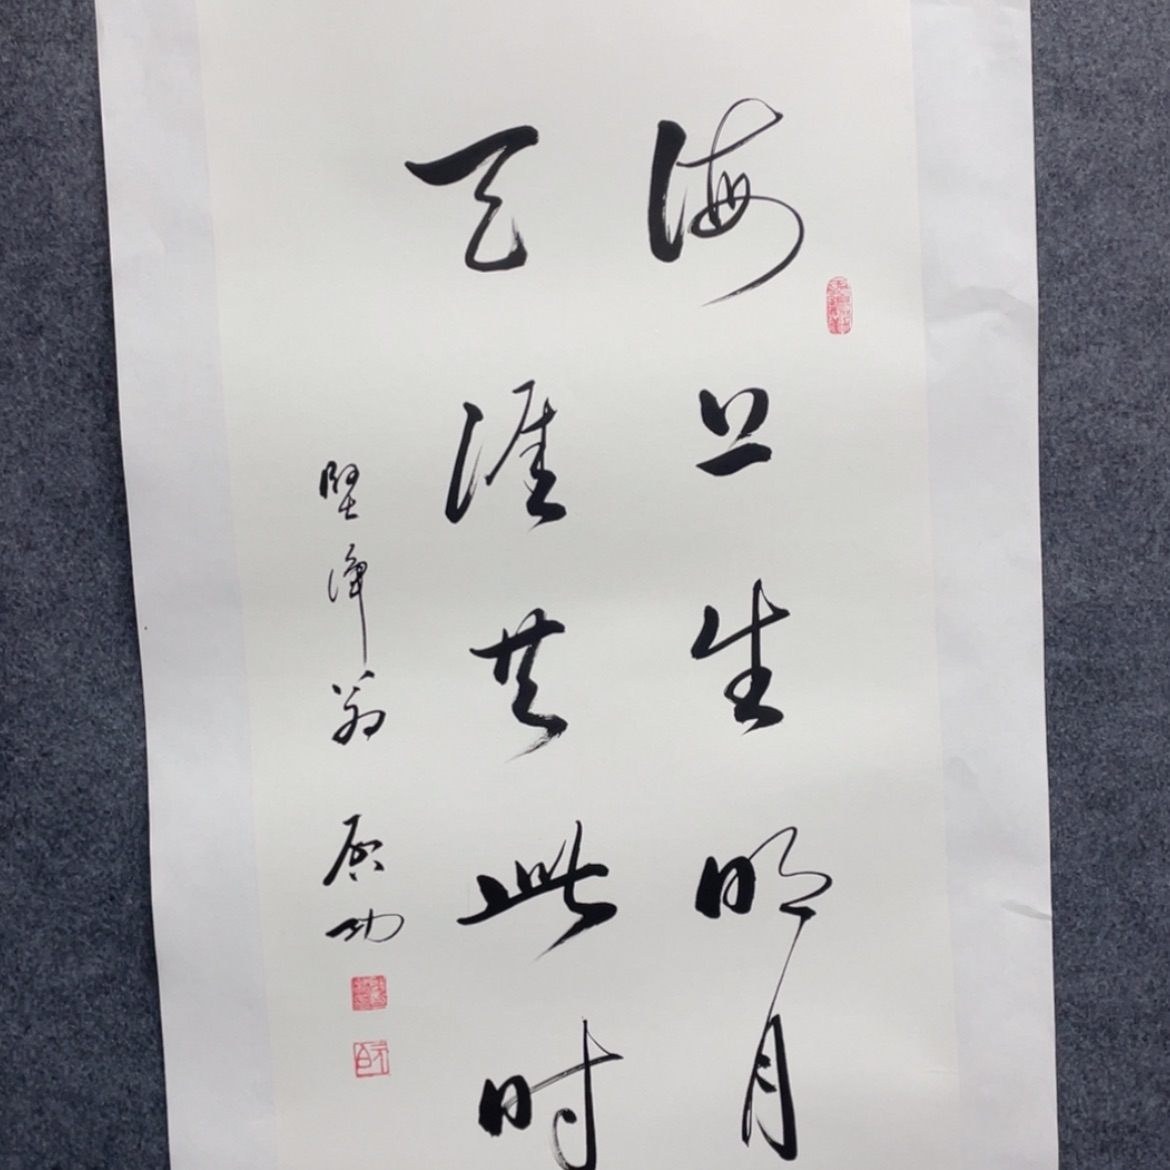 海上生明月
天涯共此时
坚净翁 启功